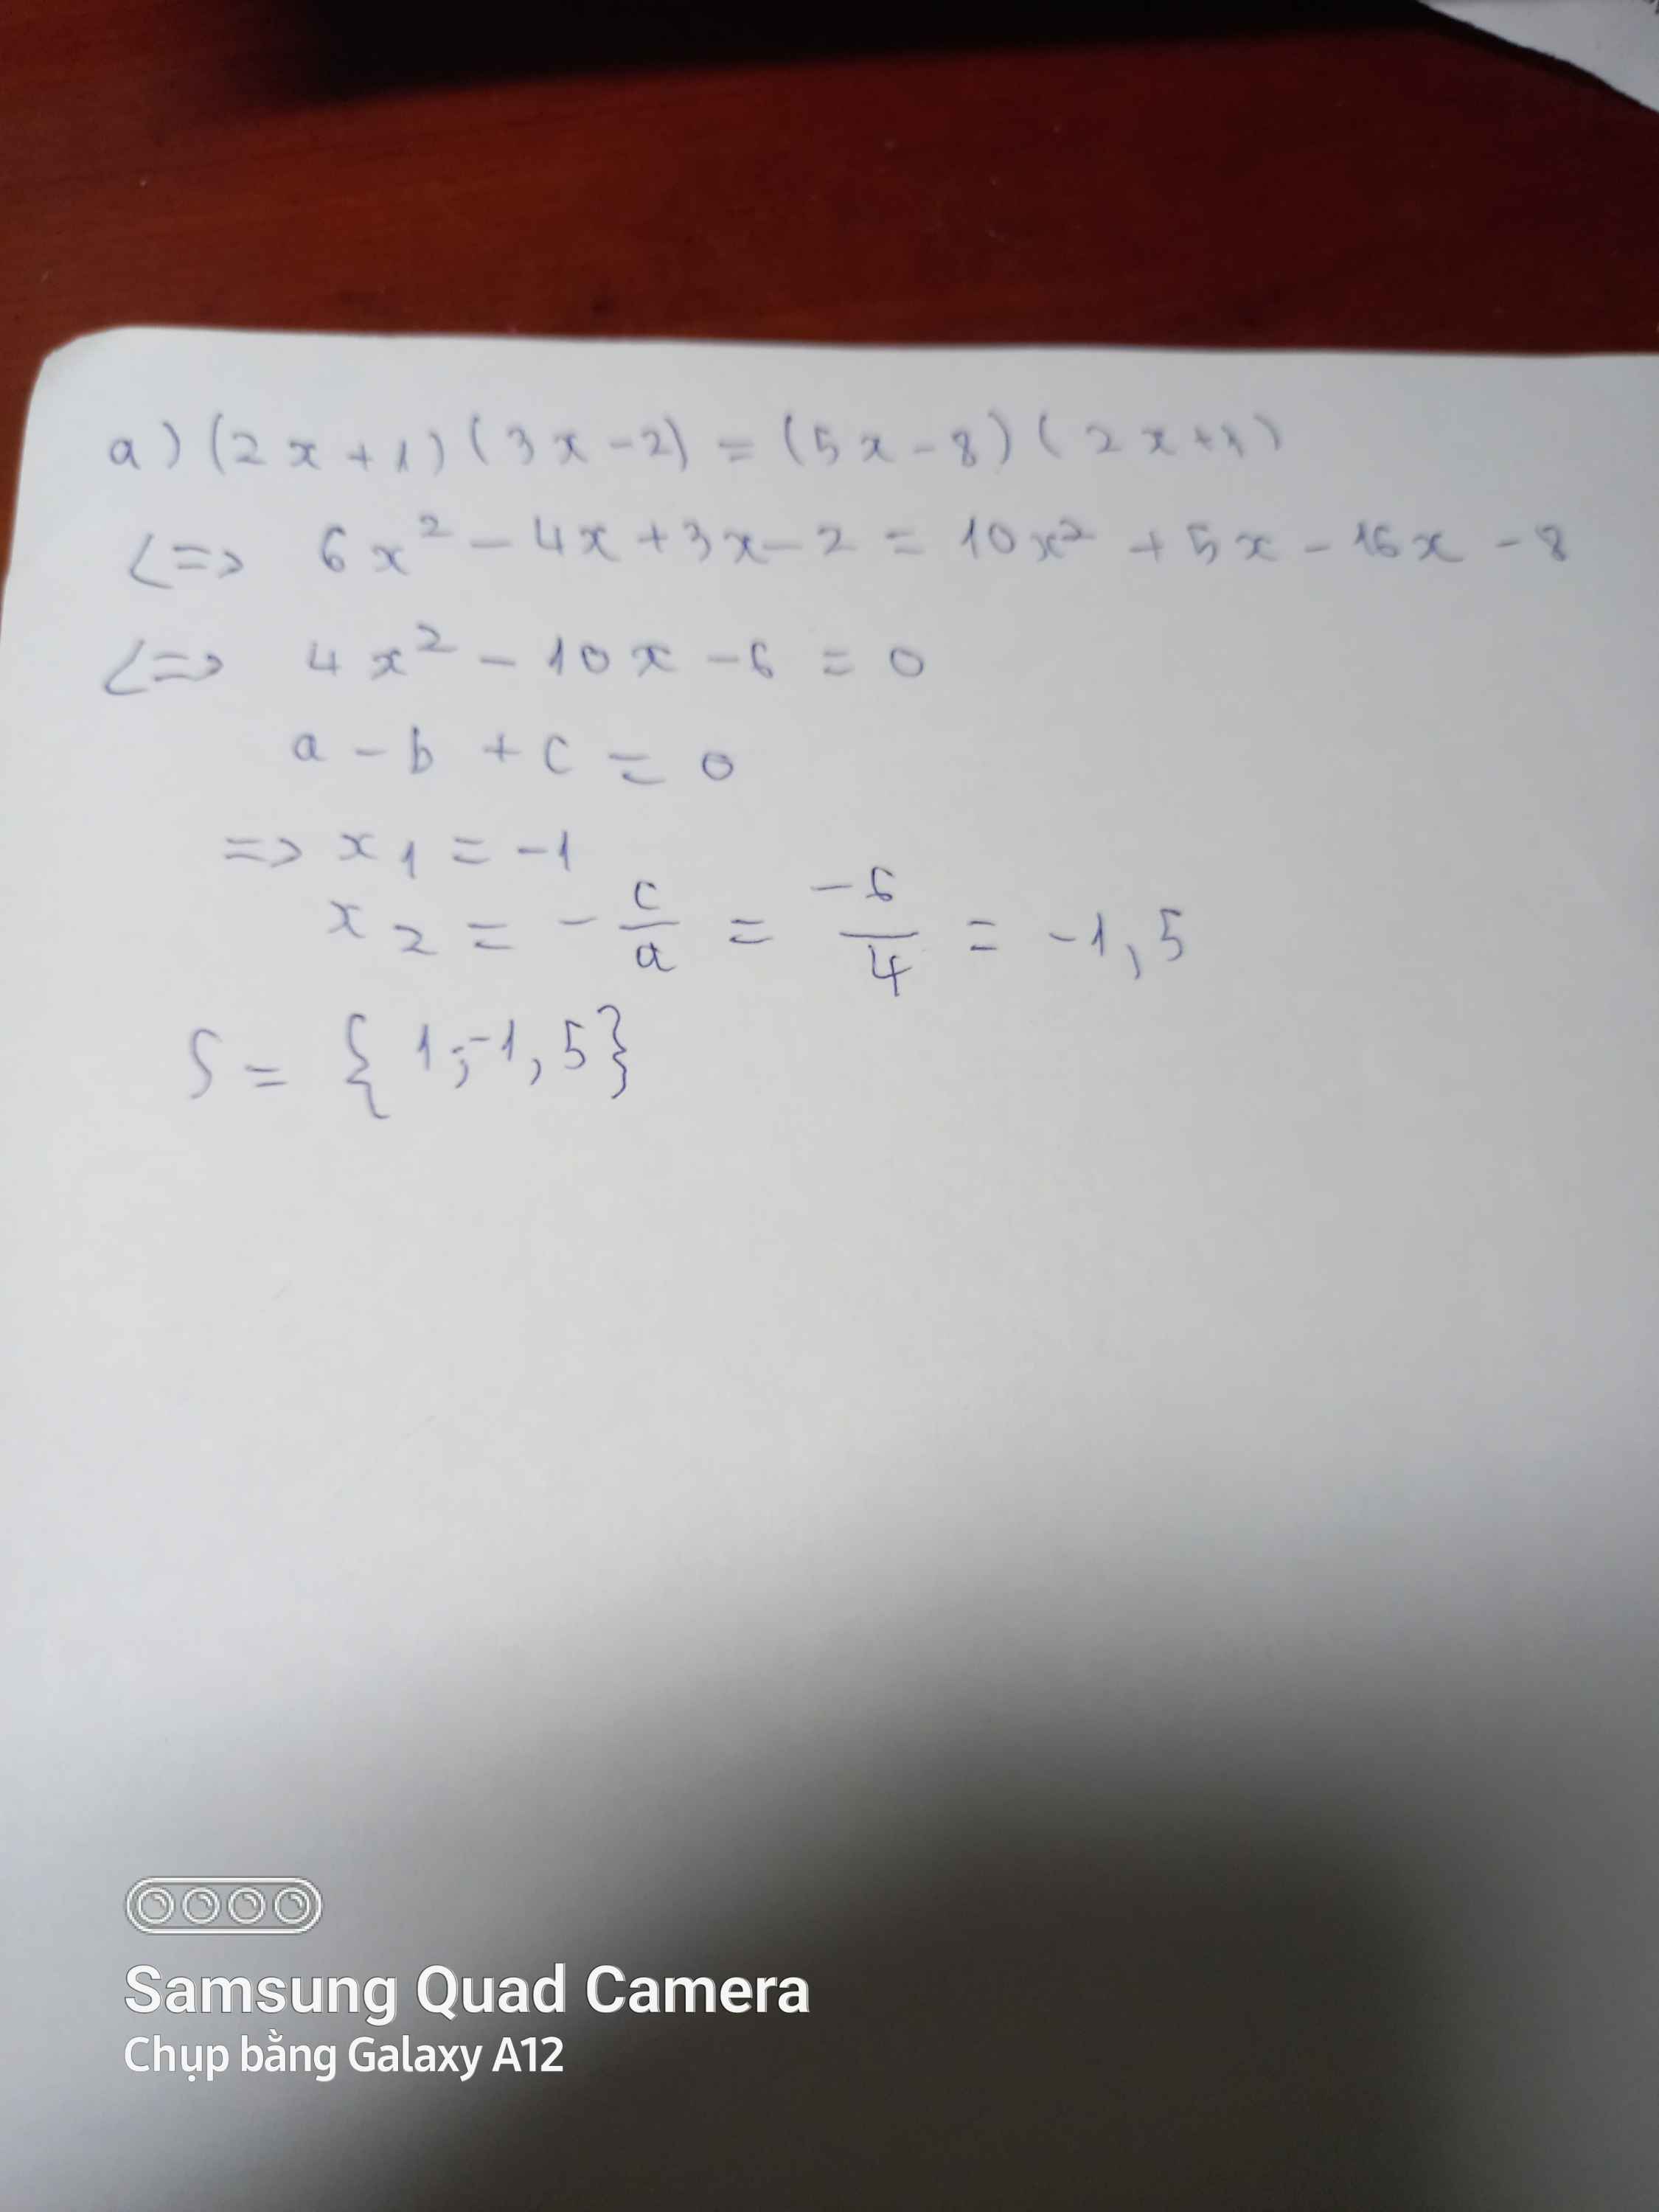 a) (2x+1)(3x-2) = (5x-8)(2x+1)
<=> 6x² - 4x + 3x - 2 = 10x² + 5x - 16x - 8
<=> 4x² - 10x - 6 = 0
a - b + c = 0
=> x₁ = -1
x₂ = - c/a = -6/4 = -1,5
S = {1;-1,5}
Samsung Quad Camera
Chụp bằng Galaxy A12